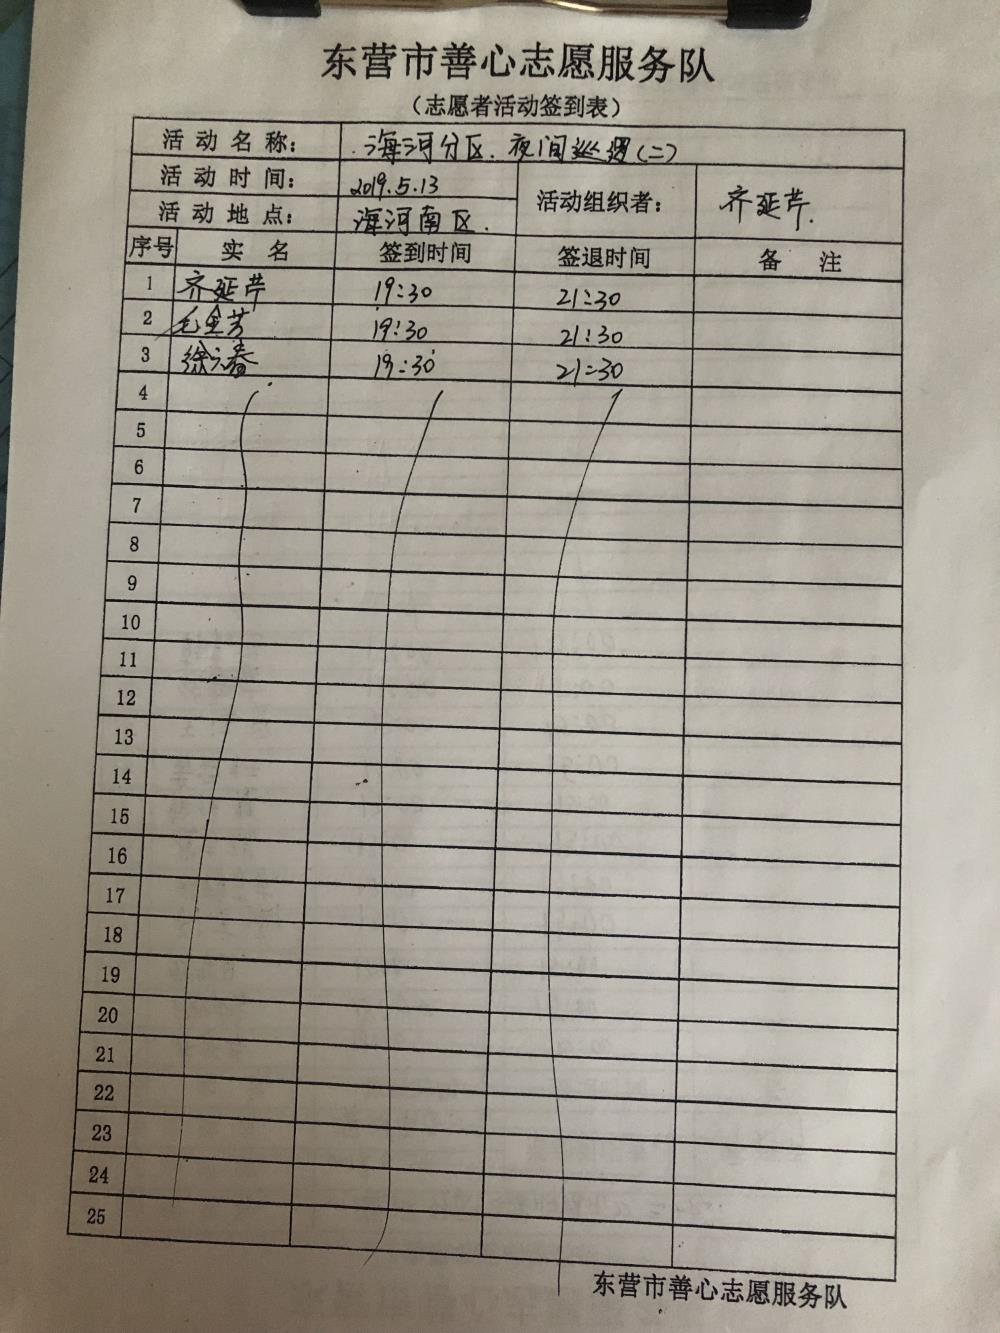 东营市善心志愿服务队
（志愿者活动签到表）
活动名称： 海河分区.夜间巡逻(二)
活动时间： 2019.5.13 活动组织者： 齐延芹.
活动地点： 海河南区.
序号 实名 签到时间 签退时间 备注
1 齐延芹 19:30 21:30
2 毛金芳 19:30 21:30
3 徐元春 19:30 21:30
4
5
6
7
8
9
10
11
12
13
14
15
16
17
18
19
20
21
22
23
24
25
东营市善心志愿服务队